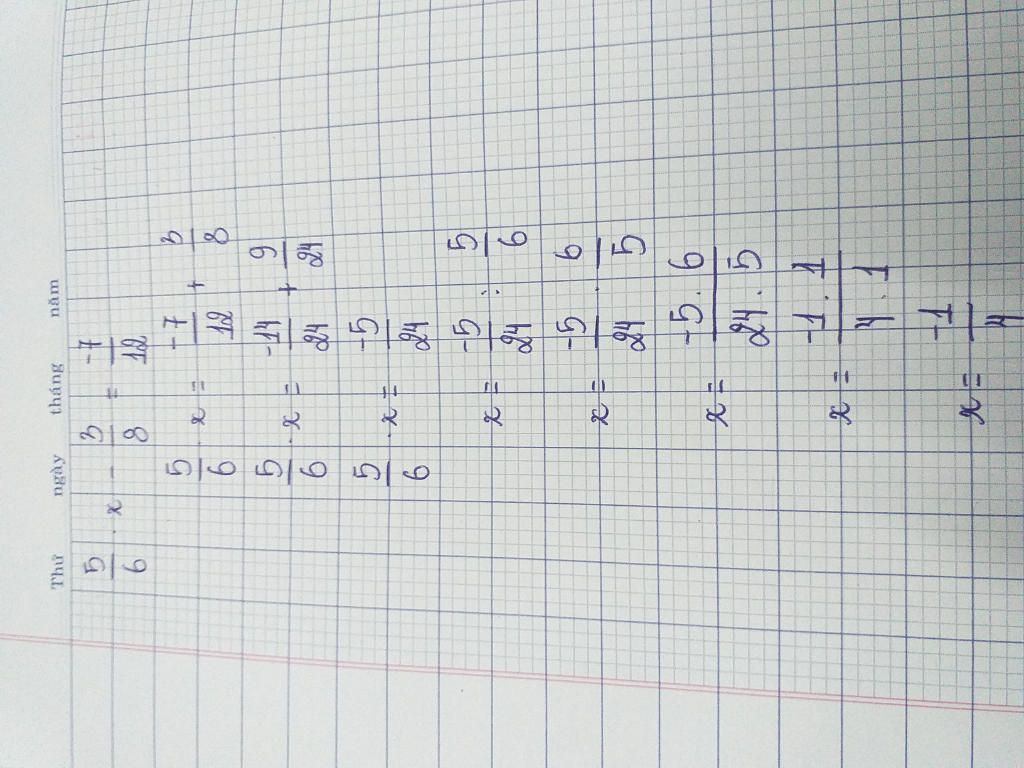 Thứ ngày tháng năm
5/6 . x - 3/8 = -7/12
5/6 . x = -7/12 + 3/8
5/6 . x = -14/24 + 9/24
5/6 . x = -5/24
x = -5/24 : 5/6
x = -5/24 . 6/5
x = -5 . 6/24 . 5
x = -1 . 1/4 . 1
x = -1/4